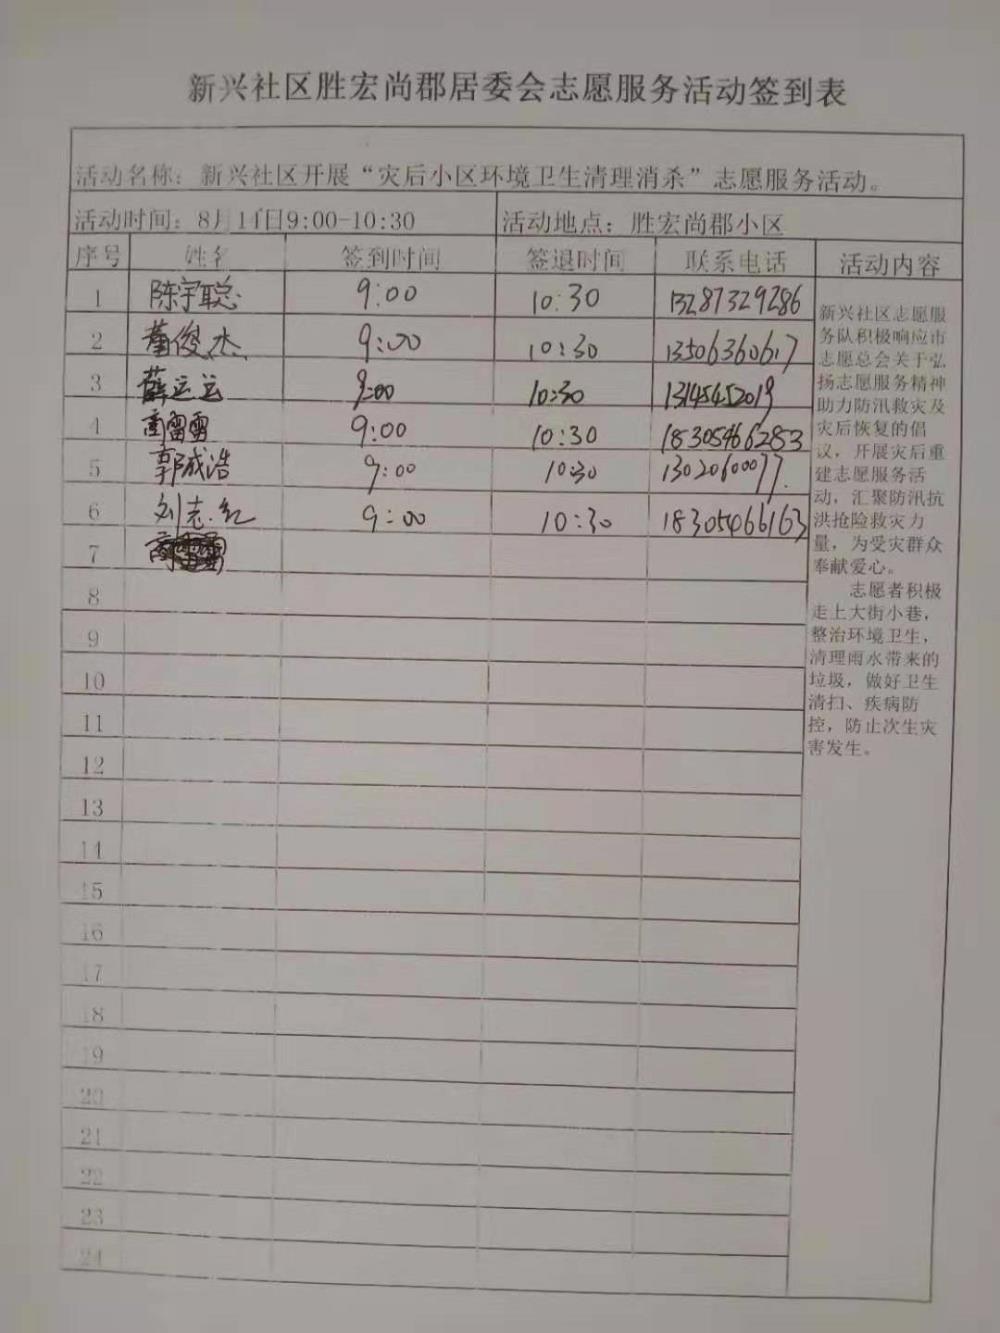 新兴社区胜宏尚郡居委会志愿服务活动签到表
活动名称：新兴社区开展“灾后小区环境卫生清理消杀”志愿服务活动。
活动时间：8月14日9:00-10:30 活动地点：胜宏尚郡小区
序号 姓名 签到时间 签退时间 联系电话 活动内容
1 陈宇聪 9:00 10:30 13287329286
2 董俊杰 9:00 10:30 13506360617
3 薛运运 9:00 10:30 13145452019
4 商雷雷 9:00 10:30 18305466283
5 郭成浩 9:00 10:30 1302060077.
6 刘志红 9:00 10:30 18305466163
7
8
9
10
11
12
13
14
15
16
17
18
19
20
21
22
23
24
新兴社区志愿服
务队积极响应市
志愿总会关于弘
扬志愿服务精神
助力防汛救灾及
灾后恢复的倡
议，开展灾后重
建志愿服务活
动，汇聚防汛抗
洪抢险救灾力
量，为受灾群众
奉献爱心。
志愿者积极
走上大街小巷，
整治环境卫生，
清理雨水带来的
垃圾，做好卫生
清扫、疾病防
控，防止次生灾
害发生。